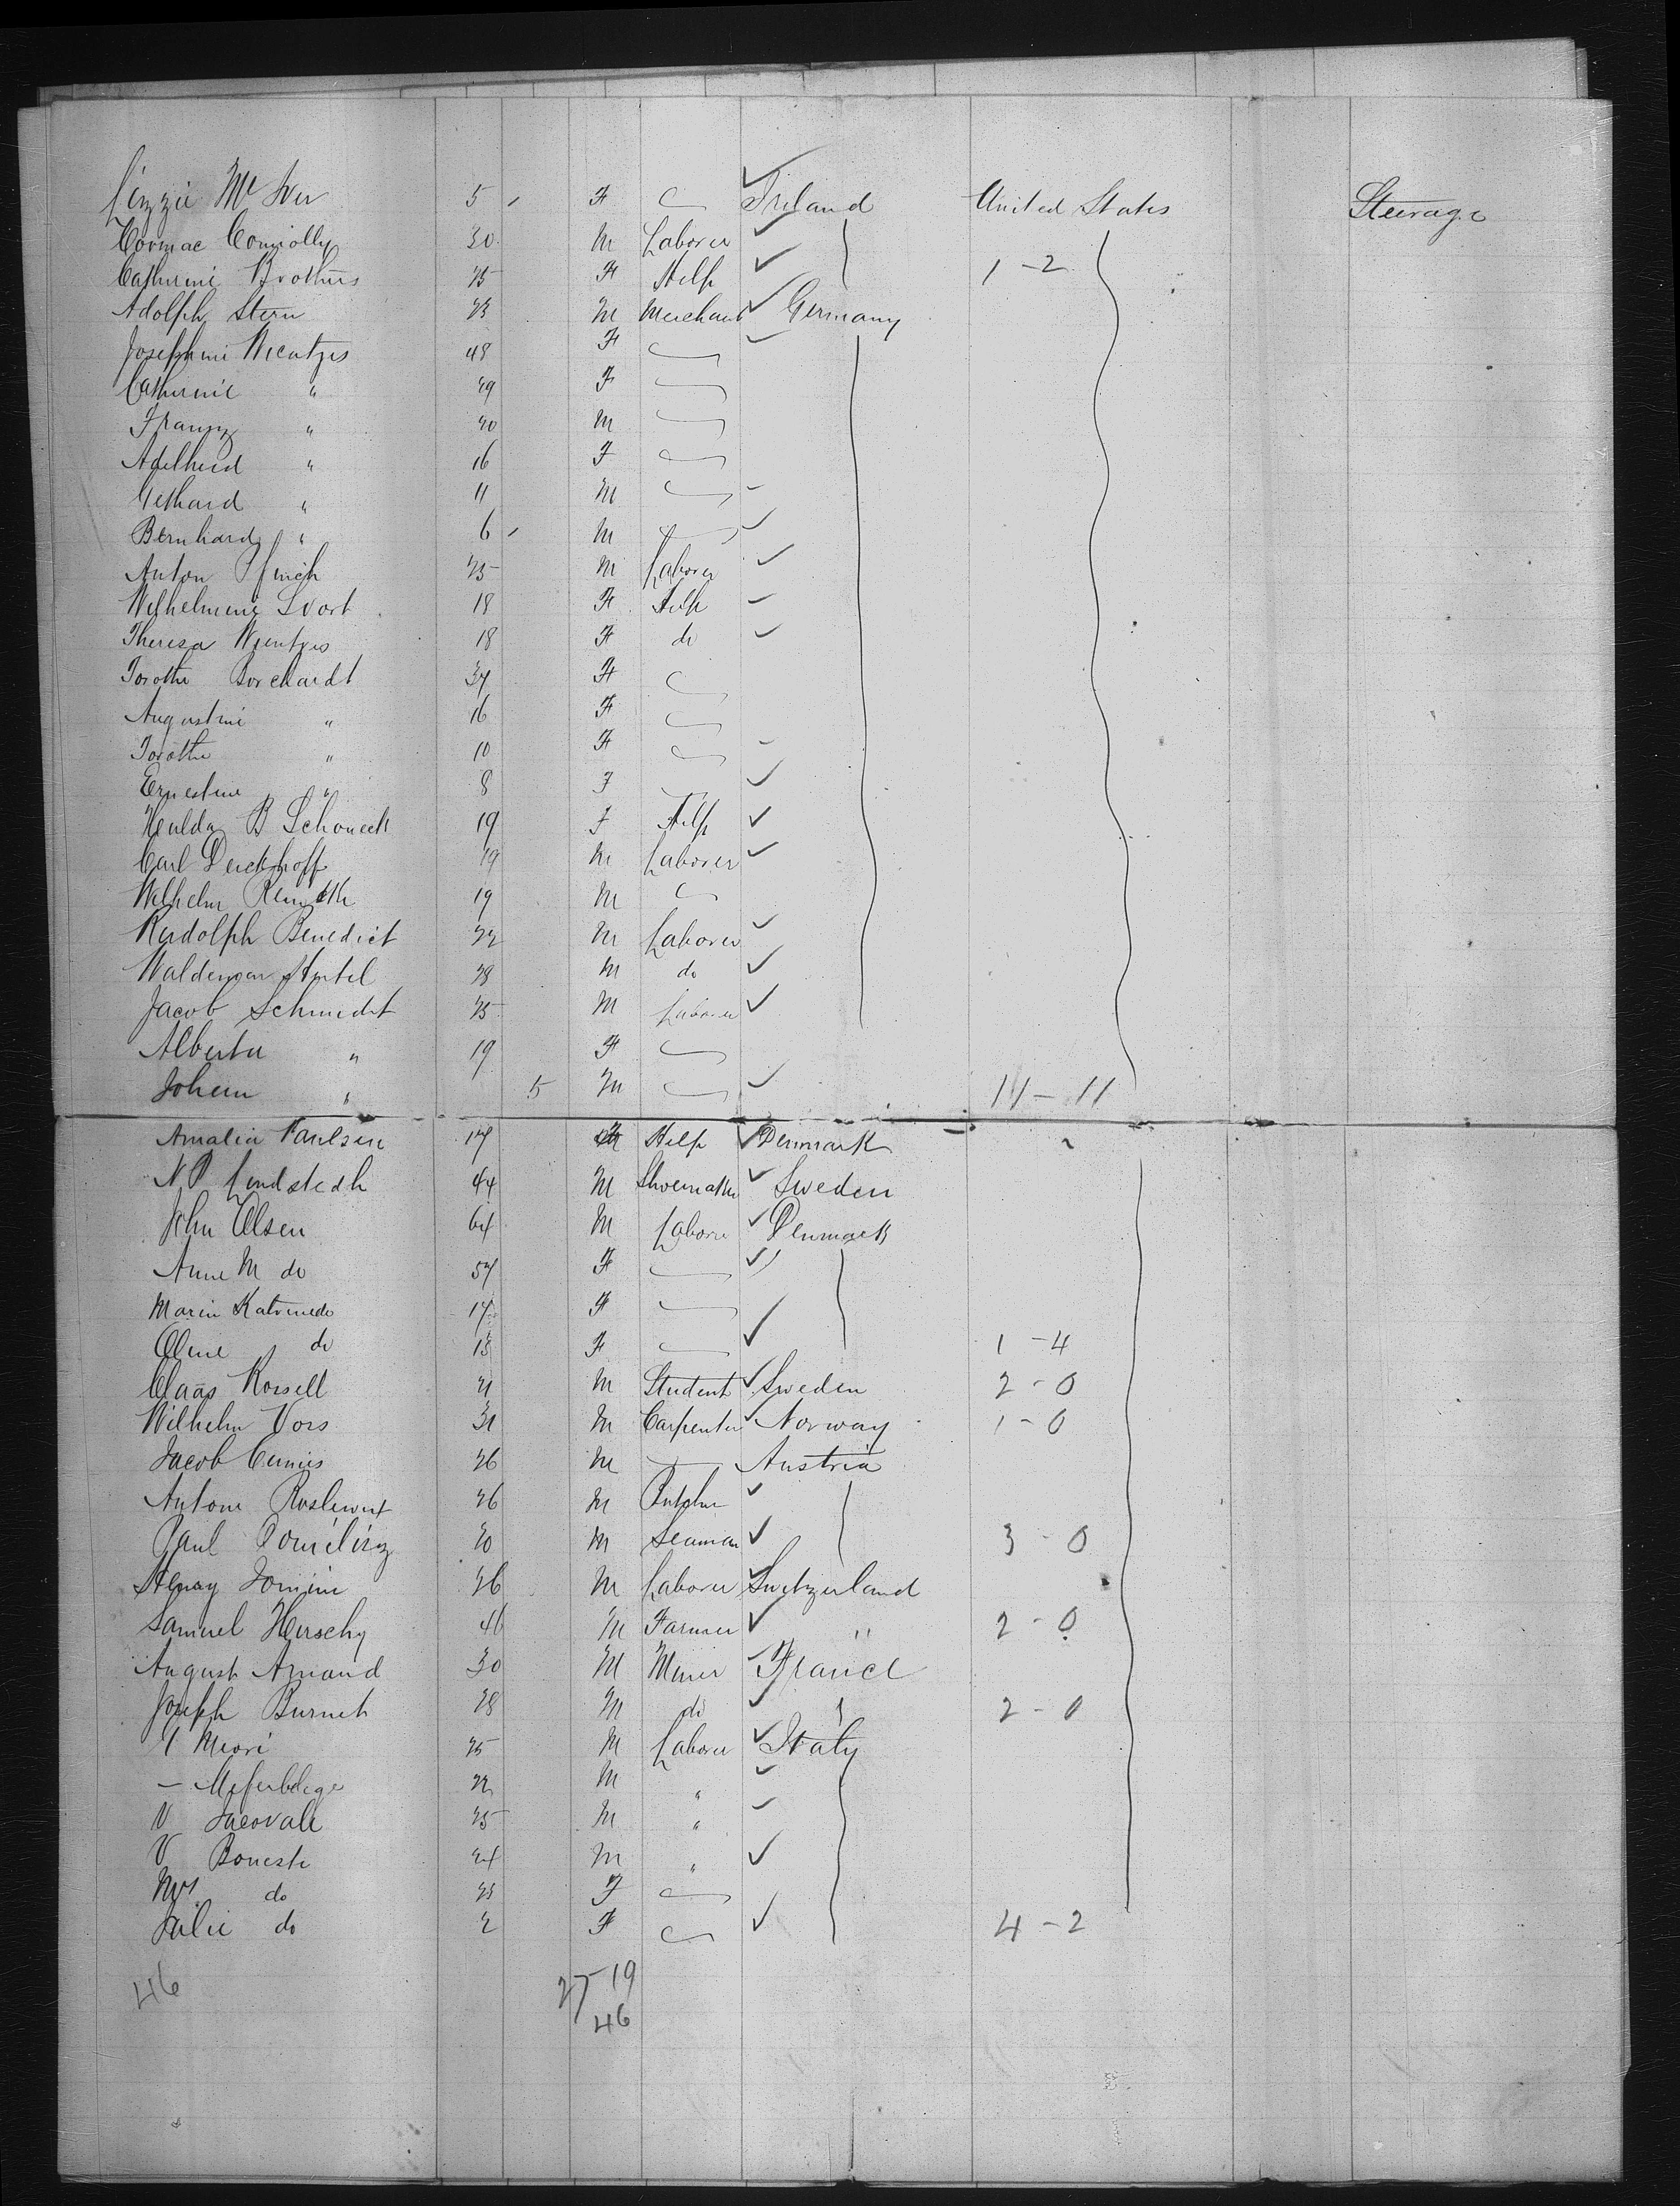 Lizzie Mc Iver 5 F Ireland United States Steerage
Cormac Connolly 30 M Laborer
Catherine Brothers 25 F Help 1 - 2
Adolph Stern 23 M Merchant Germany
Josephine 48 F
Catherine " 29 F
Franz " 20 M
Adelheid " 16 F
Gerhard " 11 M
Bernhard " 6 M
Anton 25 M Laborer
Wilhelmine 18 F Help
Theresa 18 F do
Dorothe Borchardt 37 F
Augustine " 16 F
Dorothe " 10 F
Ernestine " 8 F
Hulda B Schoneck 19 F Help
Carl Derckhoff 19 M Laborer
Wilhelm 19 M
Rudolph Benedict 22 M Laborer
Waldemar Hertel 28 M do
Jacob Schmidt 25 M Laborer
Alberta " 19 F
Johann " 5 M 11 - 11
Amalia Paulsen 17 Help Denmark
N P Lindstedh 44 M Shoemaker Sweden
John Olsen 64 M Laborer Denmark
Anne M do 57 F
Marin Katrine do 17 F
Oline do 13 F 1 - 4
Claas Korsell 21 M Student Sweden 2 - 0
Wilhelm Vors 31 M Carpenter Norway 1 - 0
Jacob 26 M Austria
Antone 26 M Butcher
Paul 20 M Seaman 3 - 0
Henry Jomini 26 M Laborer Switzerland
Samuel Herschy 46 M Farmer " 2 - 0
August Amand 30 M Miner France
Joseph Burnet 28 M do 2 - 0
Miori 25 M Laborer Italy
— 22 M "
V Jacovale 25 M "
V Boneste 24 M "
Mrs do 23 F
Julie do 2 F 4 - 2
46 27 - 19
46